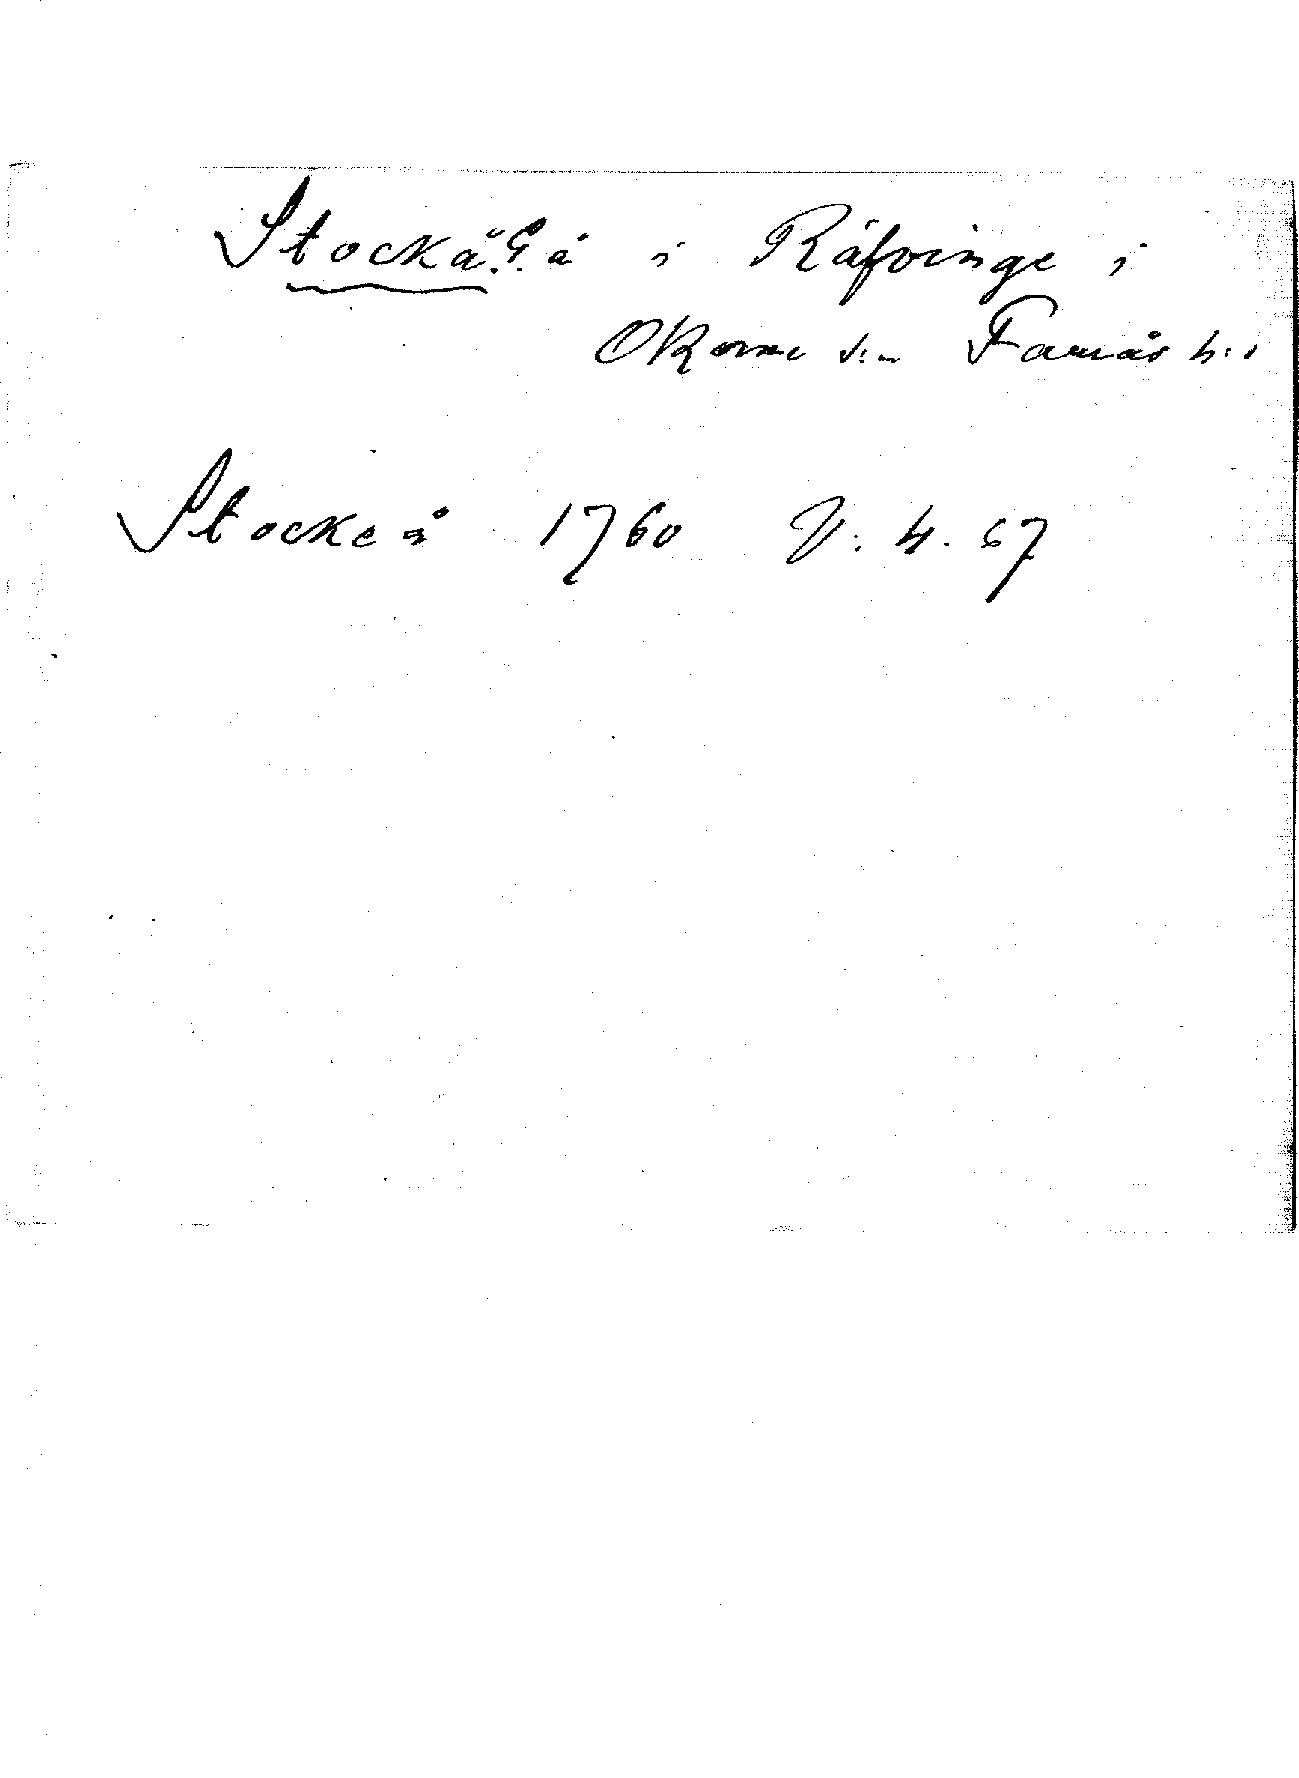 Stockä i Räfvinge i
Okome s:n Faurås h:d
Stocke å 1760 V. 4. 67